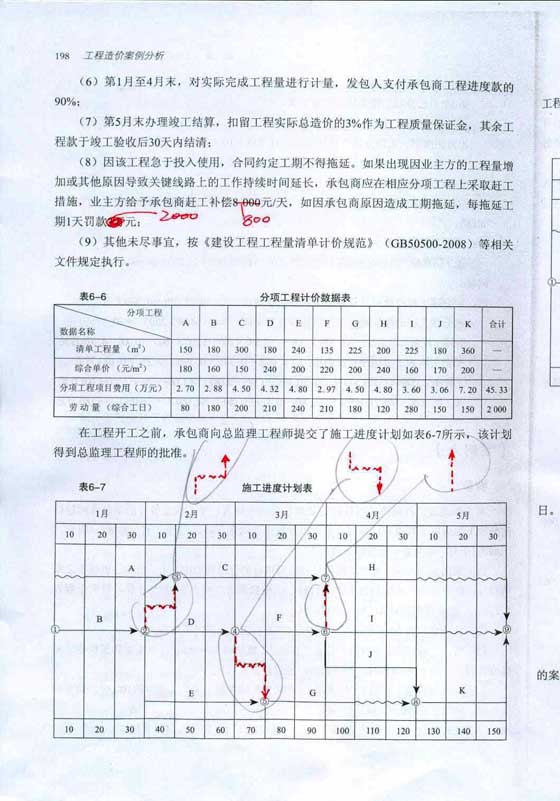 198 工程造价案例分析
（6）第1月至4月末，对实际完成工程量进行计量，发包人支付承包商工程进度款的
90%；
（7）第5月末办理竣工结算，扣留工程实际总造价的3%作为工程质量保证金，其余工
程款于竣工验收后30天内结清；
（8）因该工程急于投入使用，合同约定工期不得拖延。如果出现因业主方的工程量增
加或其他原因导致关键线路上的工作持续时间延长，承包商应在相应分项工程上采取赶工
措施，业主方给予承包商赶工补偿8 000元/天，如因承包商原因造成工期拖延，每拖延工
期1天罚款 元；
2000
800
（9）其他未尽事宜，按《建设工程工程量清单计价规范》（GB50500-2008）等相关
文件规定执行。
表6-6 分项工程计价数据表
分项工程 A B C D E F G H I J K 合计
数据名称
清单工程量（m²） 150 180 300 180 240 135 225 200 225 180 360 —
综合单价（元/m²） 180 160 150 240 200 220 200 240 160 170 200 —
分项工程项目费用（万元） 2.70 2.88 4.50 4.32 4.80 2.97 4.50 4.80 3.60 3.06 7.20 45.33
劳动量（综合工日） 80 180 200 210 240 210 180 120 280 150 150 2 000
在工程开工之前，承包商向总监理工程师提交了施工进度计划如表6-7所示，该计划
得到总监理工程师的批准。
表6-7 施工进度计划表
1月 2月 3月 4月 5月
10 20 30 10 20 30 10 20 30 10 20 30 10 20 30
A ③ C ⑦ H
① B ② D ④ F ⑥ I ⑨
J
E ⑤ G ⑧ K
10 20 30 40 50 60 70 80 90 100 110 120 130 140 150
工程
日。
的案